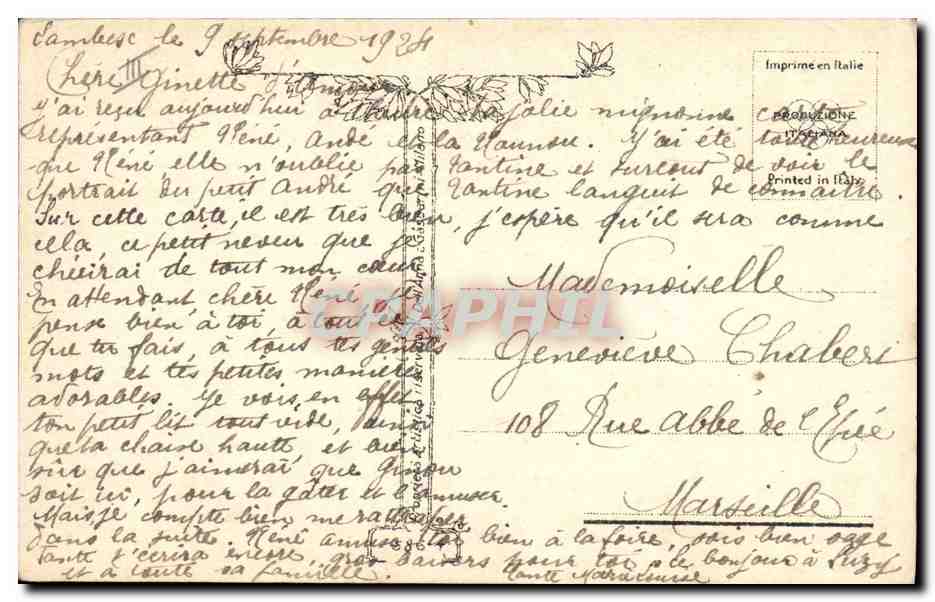 Lambesc le 9 septembre 1924
III
Chère Ginette d'Amour
J'ai reçu aujourd'hui à l'heure la jolie mignonne carte
représentant René, André et la Nounou. J'ai été toute heureuse
que René, elle n'oublie pas Tantine et surtout de voir le
portrait du petit André que Tantine languit de connaître.
Sur cette carte, il est très bien, j'espère qu'il sera comme
cela, ce petit neveu que je
chérirai de tout mon cœur
En attendant chère René je
pense bien à toi, à tout ce
que tu fais, à tous tes gentils
mots et tes petites manières
adorables. Je vois, en effet
ton petit lit tout vide, ainsi
que ta chaise haute, et bien
sûr que j'aimerai que Ginou
soit ici, pour la gâter et l'amuser
Mais je compte bien me rattraper
dans la suite. René amuse toi bien à la foire, sois bien sage
Tante t'écrira encore. Gros baisers pour toi, le bonjour à Suzy
et à toute sa famille. Tante Marie Louise
Imprimé en Italie
PRODUZIONE
ITALIANA
Printed in Italy
Mademoiselle
Geneviève Chabert
108 Rue Abbé de l'Epée
Marseille
Dell'Anna & Gasparini - Milano
CPAPHIL